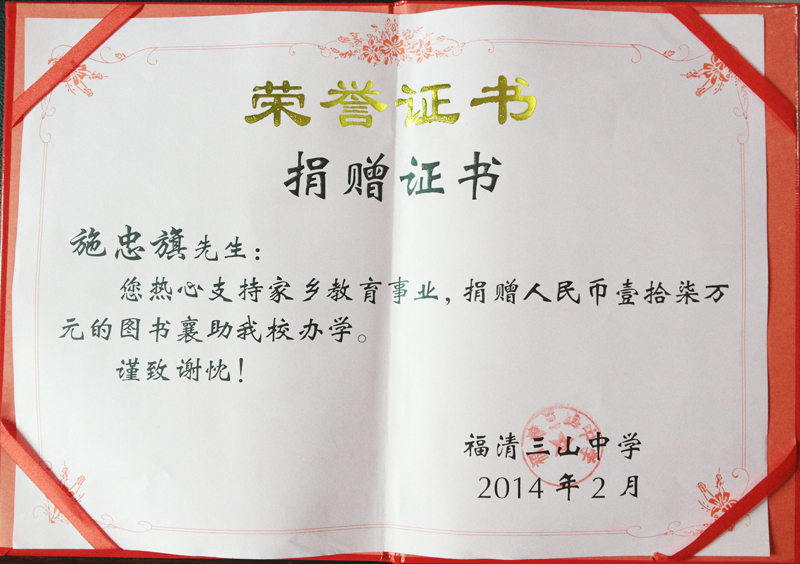 荣誉证书
捐赠证书
施忠旗先生：
您热心支持家乡教育事业，捐赠人民币壹拾柒万
元的图书襄助我校办学。
谨致谢忱！
福清三山中学
2014年2月